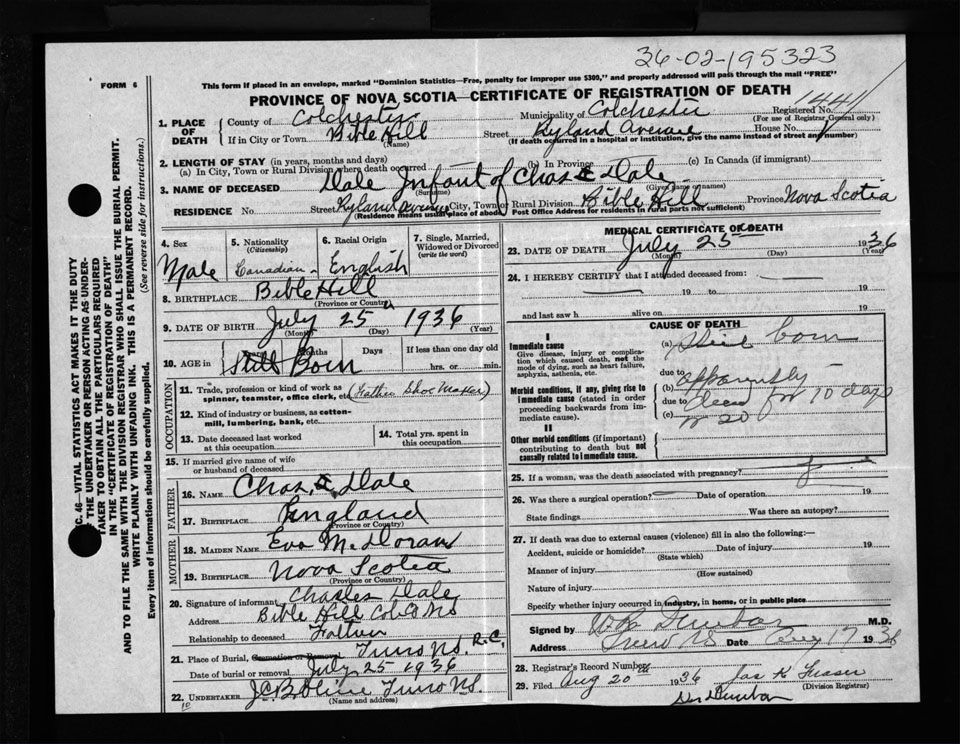 36-02-195323
FORM 6
This form if placed in an envelope, marked "Dominion Statistics—Free, penalty for improper use $300," and properly addressed will pass through the mail "FREE"
PROVINCE OF NOVA SCOTIA—CERTIFICATE OF REGISTRATION OF DEATH
1. PLACE OF DEATH
County of Colchester Municipality of Colchester Registered No. 1441
(For use of Registrar General only)
If in City or Town Bible Hill Street Ryland Avenue House No.
(Name) (If death occurred in a hospital or institution, give the name instead of street and number)
2. LENGTH OF STAY (in years, months and days)
(a) In City, Town or Rural Division where death occurred (b) In Province (c) In Canada (if immigrant)
3. NAME OF DECEASED Dale Infant of Chas. Dale
(Surname) (Given name or names)
RESIDENCE No. Street Ryland avenue City, Town or Rural Division Bible Hill Province Nova Scotia
(Residence means usual place of abode. Post Office Address for residents in rural parts not sufficient)
4. Sex Male
5. Nationality (Citizenship) Canadian
6. Racial Origin English
7. Single, Married, Widowed or Divorced (write the word)
8. BIRTHPLACE Bible Hill
(Province or Country)
9. DATE OF BIRTH July 25 1936
(Month) (Day) (Year)
10. AGE in Years Months Days If less than one day old
Still Born hrs. or min.
OCCUPATION
11. Trade, profession or kind of work as spinner, teamster, office clerk, etc. (Father Shoe Maker)
12. Kind of industry or business, as cotton-mill, lumbering, bank, etc.
13. Date deceased last worked at this occupation
14. Total yrs. spent in this occupation
15. If married give name of wife or husband of deceased
FATHER
16. NAME Chas. Dale
17. BIRTHPLACE England
(Province or Country)
MOTHER
18. MAIDEN NAME Eva M. Doran
19. BIRTHPLACE Nova Scotia
(Province or Country)
20. Signature of informant Charles Dale
Address Bible Hill Col. Co NS
Relationship to deceased Father
21. Place of Burial, Cremation or Removal Truro NS. R.C.
Date of burial or removal July 25 1936
22. UNDERTAKER Truro NS.
(Name and address)
MEDICAL CERTIFICATE OF DEATH
23. DATE OF DEATH July 25 1936
(Month) (Day) (Year)
24. I HEREBY CERTIFY that I attended deceased from:
19 to 19
and last saw h alive on 19
CAUSE OF DEATH
I
Immediate cause
Give disease, injury or complication which caused death, not the mode of dying, such as heart failure, asphyxia, asthenia, etc.
(a) Still born
due to
Morbid conditions, if any, giving rise to immediate cause (stated in order proceeding backwards from immediate cause).
(b) apparently
due to dead for 10 days
(c) or 20
II
Other morbid conditions (if important) contributing to death but not causally related to immediate cause.
25. If a woman, was the death associated with pregnancy?
26. Was there a surgical operation? Date of operation 19
State findings Was there an autopsy?
27. If death was due to external causes (violence) fill in also the following:—
Accident, suicide or homicide? Date of injury 19
(State which)
Manner of injury
(How sustained)
Nature of injury
Specify whether injury occurred in industry, in home, or in public place
Signed by Dunbar M.D.
Address Truro NS Date Aug 17 1936
28. Registrar's Record Number
29. Filed Aug 20th 1936 Jas K Fraser
(Division Registrar)
Dr Dunbar
C. 46—VITAL STATISTICS ACT MAKES IT THE DUTY
OF THE UNDERTAKER OR PERSON ACTING AS UNDER-
TAKER TO OBTAIN ALL THE PARTICULARS REQUIRED
IN THE "CERTIFICATE OF REGISTRATION OF DEATH"
AND TO FILE THE SAME WITH THE DIVISION REGISTRAR WHO SHALL ISSUE THE BURIAL PERMIT.
WRITE PLAINLY WITH UNFADING INK. THIS IS A PERMANENT RECORD.
Every item of information should be carefully supplied. (See reverse side for instructions.)